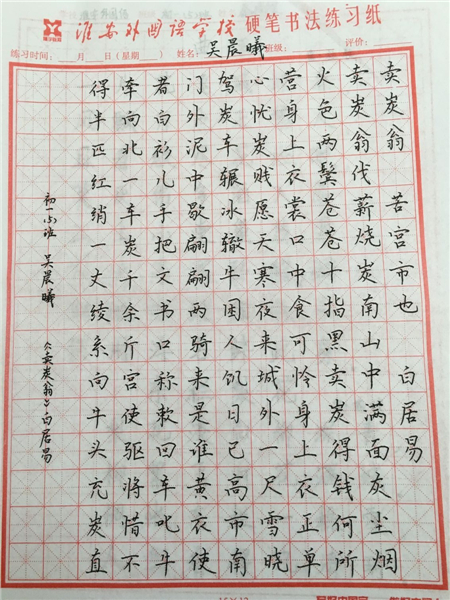 淮安外国语学校 硬笔书法练习纸
练习时间: 月 日(星期 ) 姓名:吴晨曦 班级: 评价:
卖炭翁 苦宫市也 白居易
卖炭翁伐薪烧炭南山中满面灰尘烟
火色两鬓苍苍十指黑卖炭得钱何所
营身上衣裳口中食可怜身上衣正单
心忧炭贱愿天寒夜来城外一尺雪晓
驾炭车辗冰辙牛困人饥日已高市南
门外泥中歇翩翩两骑来是谁黄衣使
者白衫儿手把文书口称敕回车叱牛
牵向北一车炭千余斤宫使驱将惜不
得半匹红绡一丈绫系向牛头充炭直
初一(5)班 吴晨曦 《卖炭翁》白居易